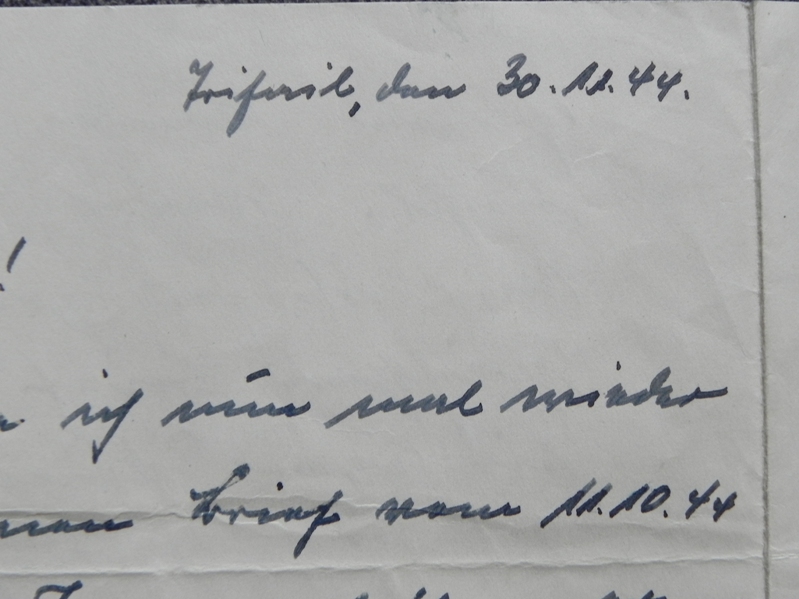 Trifail, den 30.11.44.
!
ich nun mal wieder
Brief vom 11.10.44